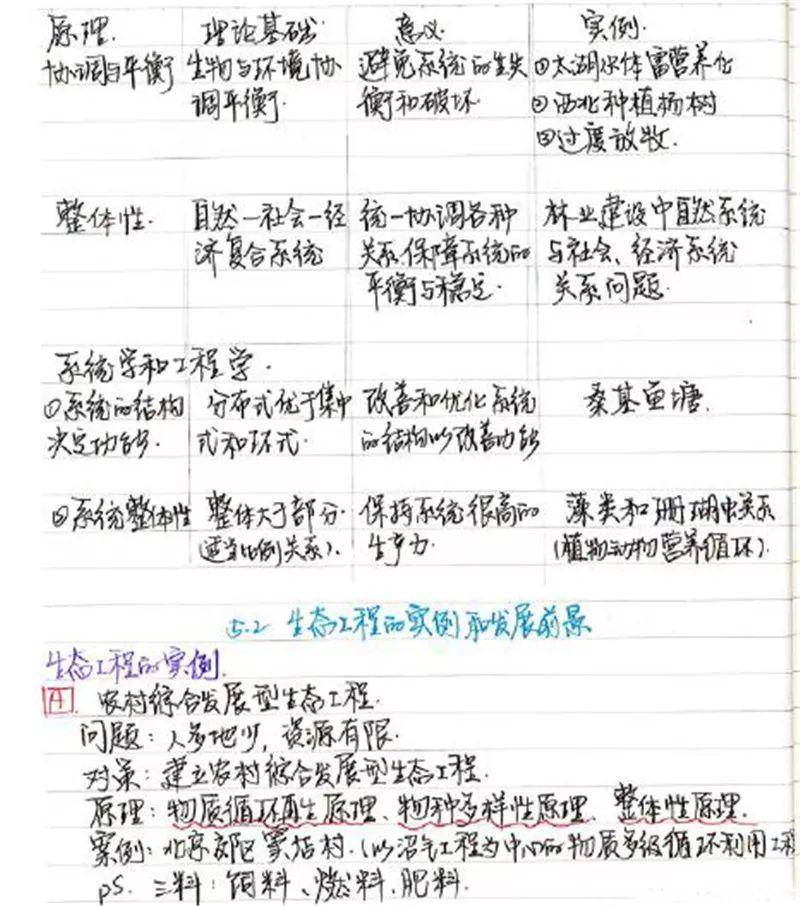 原理. 理论基础 意义 实例.
协调与平衡 生物与环境协 避免系统的生失 ①太湖水体富营养化
调平衡. 衡和破坏. ②西北种植杨树
③过度放牧.
整体性. 自然一社会一经 统一协调各种 林业建设中自然系统
济复合系统 关系,保障系统的 与社会、经济系统
平衡与稳定. 关系问题.
系统学和工程学.
①系统的结构 分布式优于集中 改善和优化系统 桑基鱼塘.
决定功能. 式和环式. 的结构以改善功能
②系统整体性 整体大于部分. 保持系统很高的 藻类和珊瑚虫关系
(适当比例关系). 生产力. (植物动物营养循环).
5.2 生态工程的实例和发展前景
生态工程的实例.
A. 农村综合发展型生态工程.
问题:人多地少,资源有限.
对策:建立农村综合发展型生态工程.
原理:物质循环再生原理、物种多样性原理、整体性原理.
案例:北京郊区窦店村.(以沼气工程为中心的物质多级循环利用工程
PS. 三料:饲料、燃料、肥料.